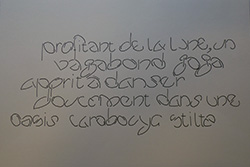 profitant de la lune, un
vagabond
apprit à danser
doucement dans une
oasis